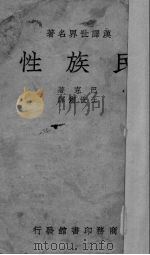 漢譯世界名著
民族性
巴克著
商務印書館發行